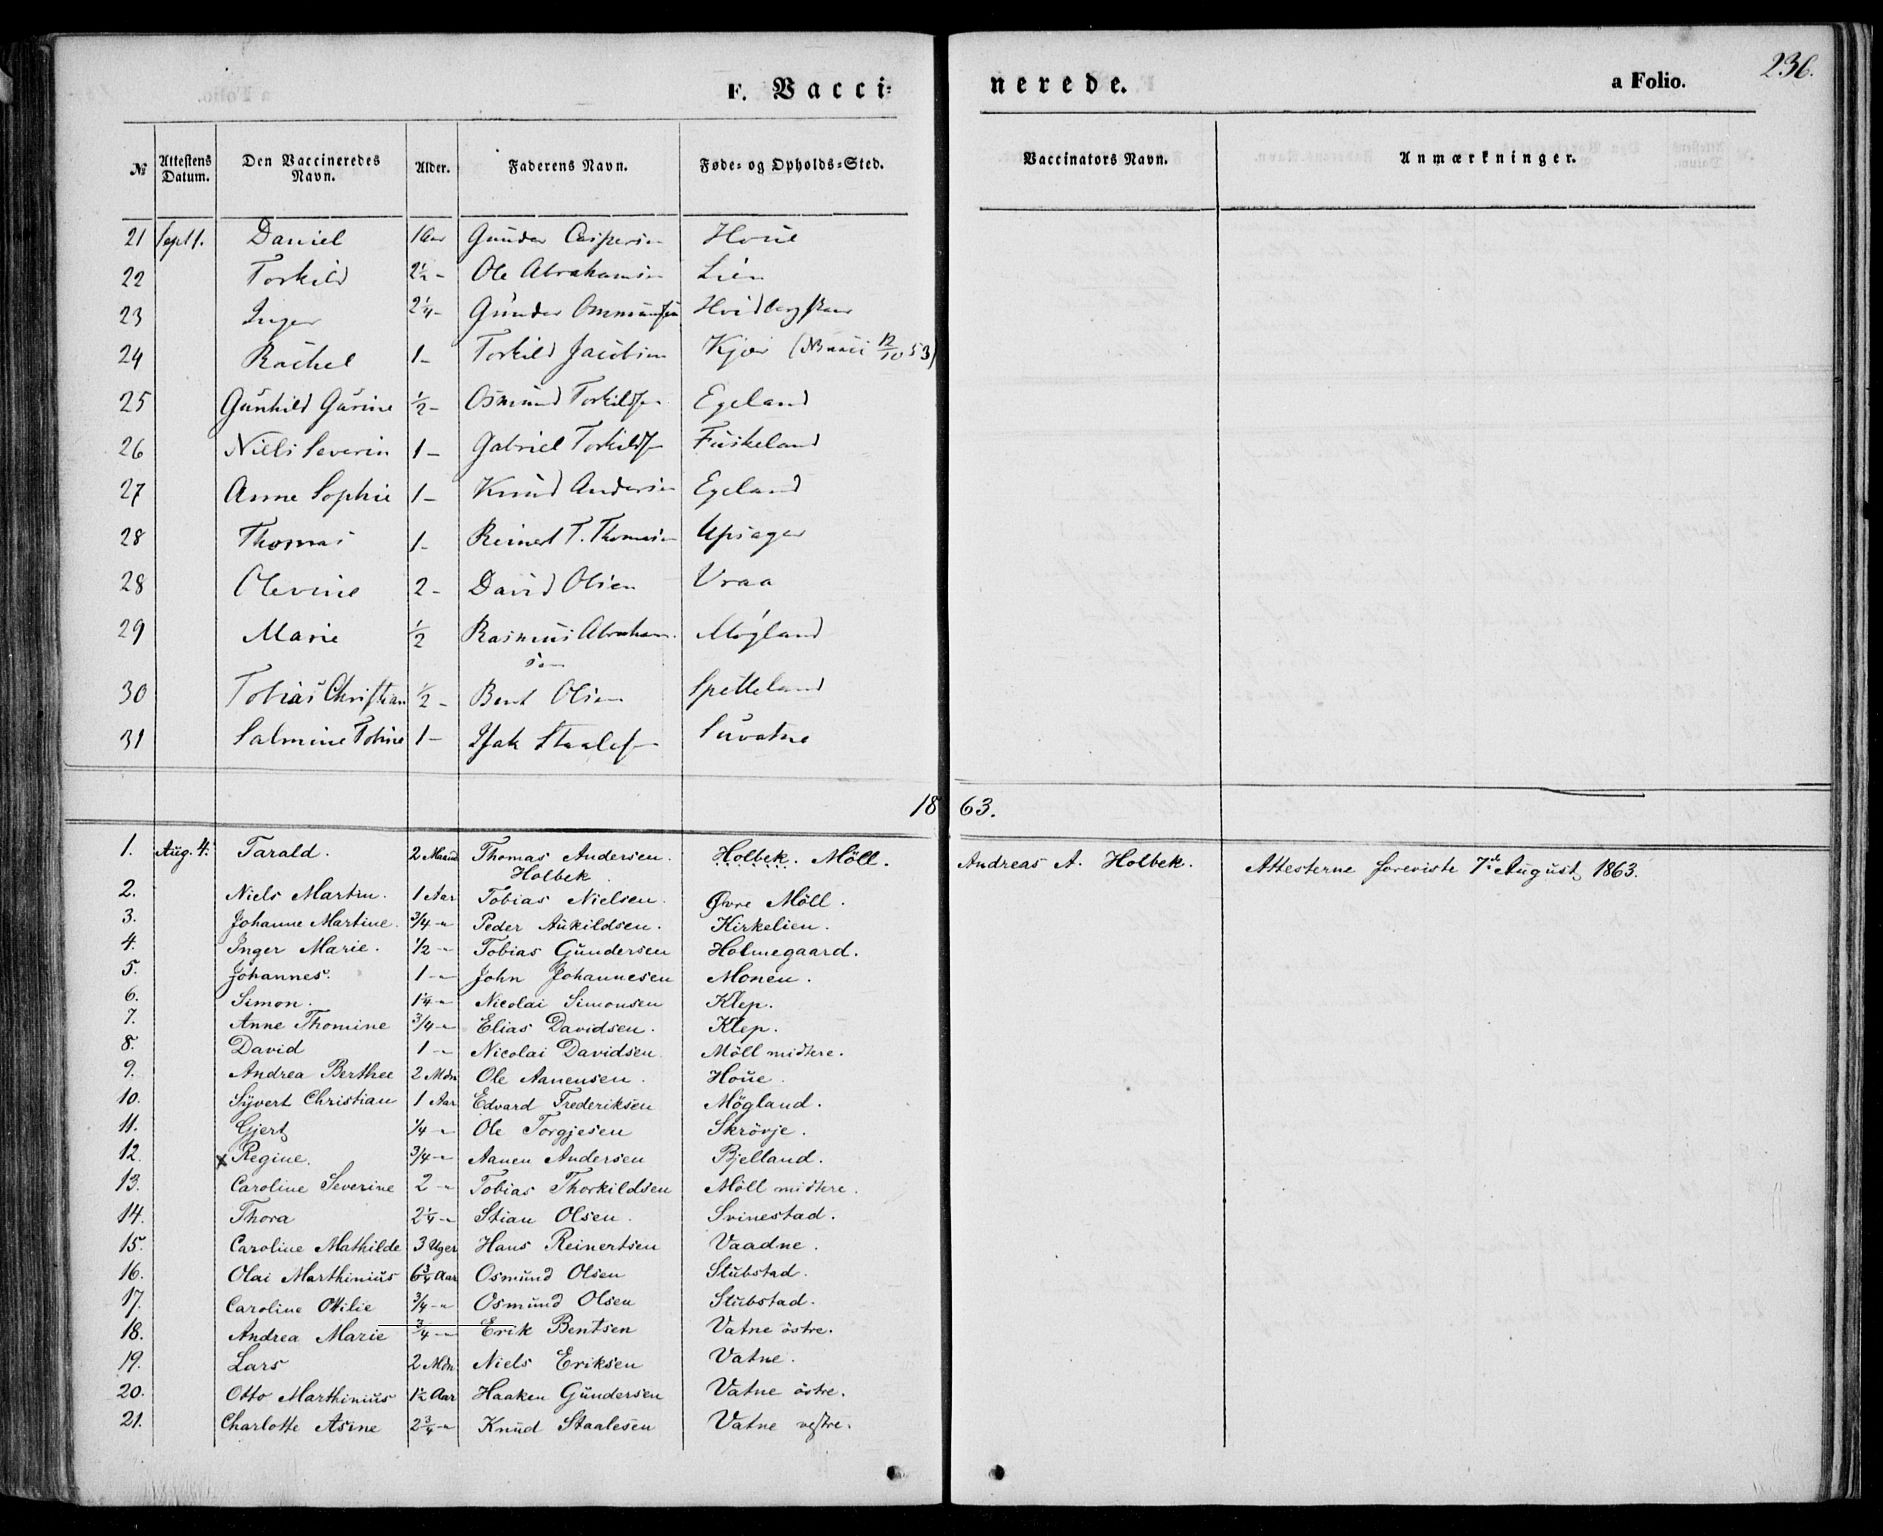 236.
F. Vaccinerede. a Folio.
№ Attestens Datum. Den Vaccineredes Navn. Alder. Faderens Navn. Føde- og Opholds-Sted. Vaccinators Navn. Anmærkninger.
21 Sept 1. Daniel 1 Aar Gunder Caspersen Houe
22 Torkild 2½ - Ole Abrahamsen Lien
23 Inger 2¼ - Gunder Ommundsen Hvidbergskar
24 Rachel 1 - Torkild Jacobsen Kjær 12/10 53)
25 Gunhild Gurine ½ - Osmund Torkildsen Egeland
26 Niels Severin 1 - Gabriel Torkildsen Fuskeland
27 Anne Sophie 1 - Knud Andersen Egeland
28 Thomas 1 - Reinert T. Thomasen Upsager
28 Olevine 2 - David Olsen Vraa
29 Marie ½ Rasmus Abraham
sen Møgland
30 Tobias Christian ½ - Bent Olsen Spetteland
31 Salmine Tobine 1 - Isak Staalesen Suvatne
1863.
1. Aug. 4. Tarald. 2 Maand Thomas Andersen. Holbek. Möll. Andreas A. Holbek. Attesterne foreviste 7de August 1863.
Holbek
2. Niels Martin. 1 Aar Tobias Nielsen. Øvre Möll.
3. Johanne Martine. 3/4 -" Peder Aukildsen. Kirkelien.
4. Inger Marie. 1/2 -" Tobias Gundersen Holmegaard.
5. Johannes. 1 -" John Johannesen Monen.
6. Simon. 1¼ -" Nicolai Simonsen Klep.
7. Anne Thomine 3/4 -" Elias Davidsen. Klep.
8. David 1 -" Nicolai Davidsen. Möll midtere.
9. Andrea Berthee 2 Mdn Ole Aanensen. Houe.
10. Syvert Christian 1 Aar Edvard Frederiksen Mögland.
11. Gjert 1/4 -" Ole Torgjesen Skrövje.
12. x Regine. 3/4 -" Aanen Andersen Bjelland.
13. Caroline Severine 2 -" Tobias Thorkildsen Möll midtere.
14. Thora 2¼ -" Stian Olsen. Svinestad.
15. Caroline Mathilde 3 Uger Hans Reinertsen Vaadne.
16. Olai Marthinius 6¾ Aar Osmund Olsen Stubstad.
17. Caroline Otilie 3/4 -" Osmund Olsen Stubstad.
18. Andrea Marie 3/4 -" Erik Bentsen Vatne östre.
19. Lars 2 Mdn Niels Eriksen Vatne.
20. Otto Marthinius 1½ Aar Haaken Gundersen Vatne östre.
21. Charlotte Asine 2¾ -" Knud Staalesen Vatne vestre.